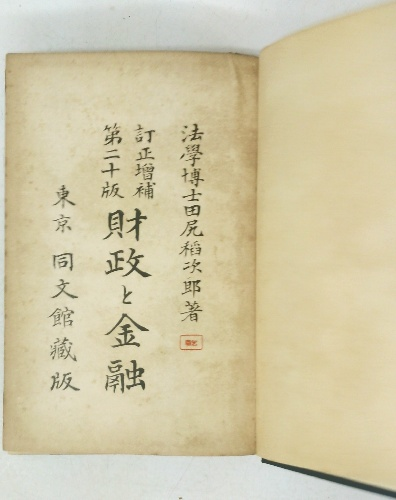 法學博士田尻稻次郎著
訂正增補
第二十版
財政と金融
東京 同文館藏版